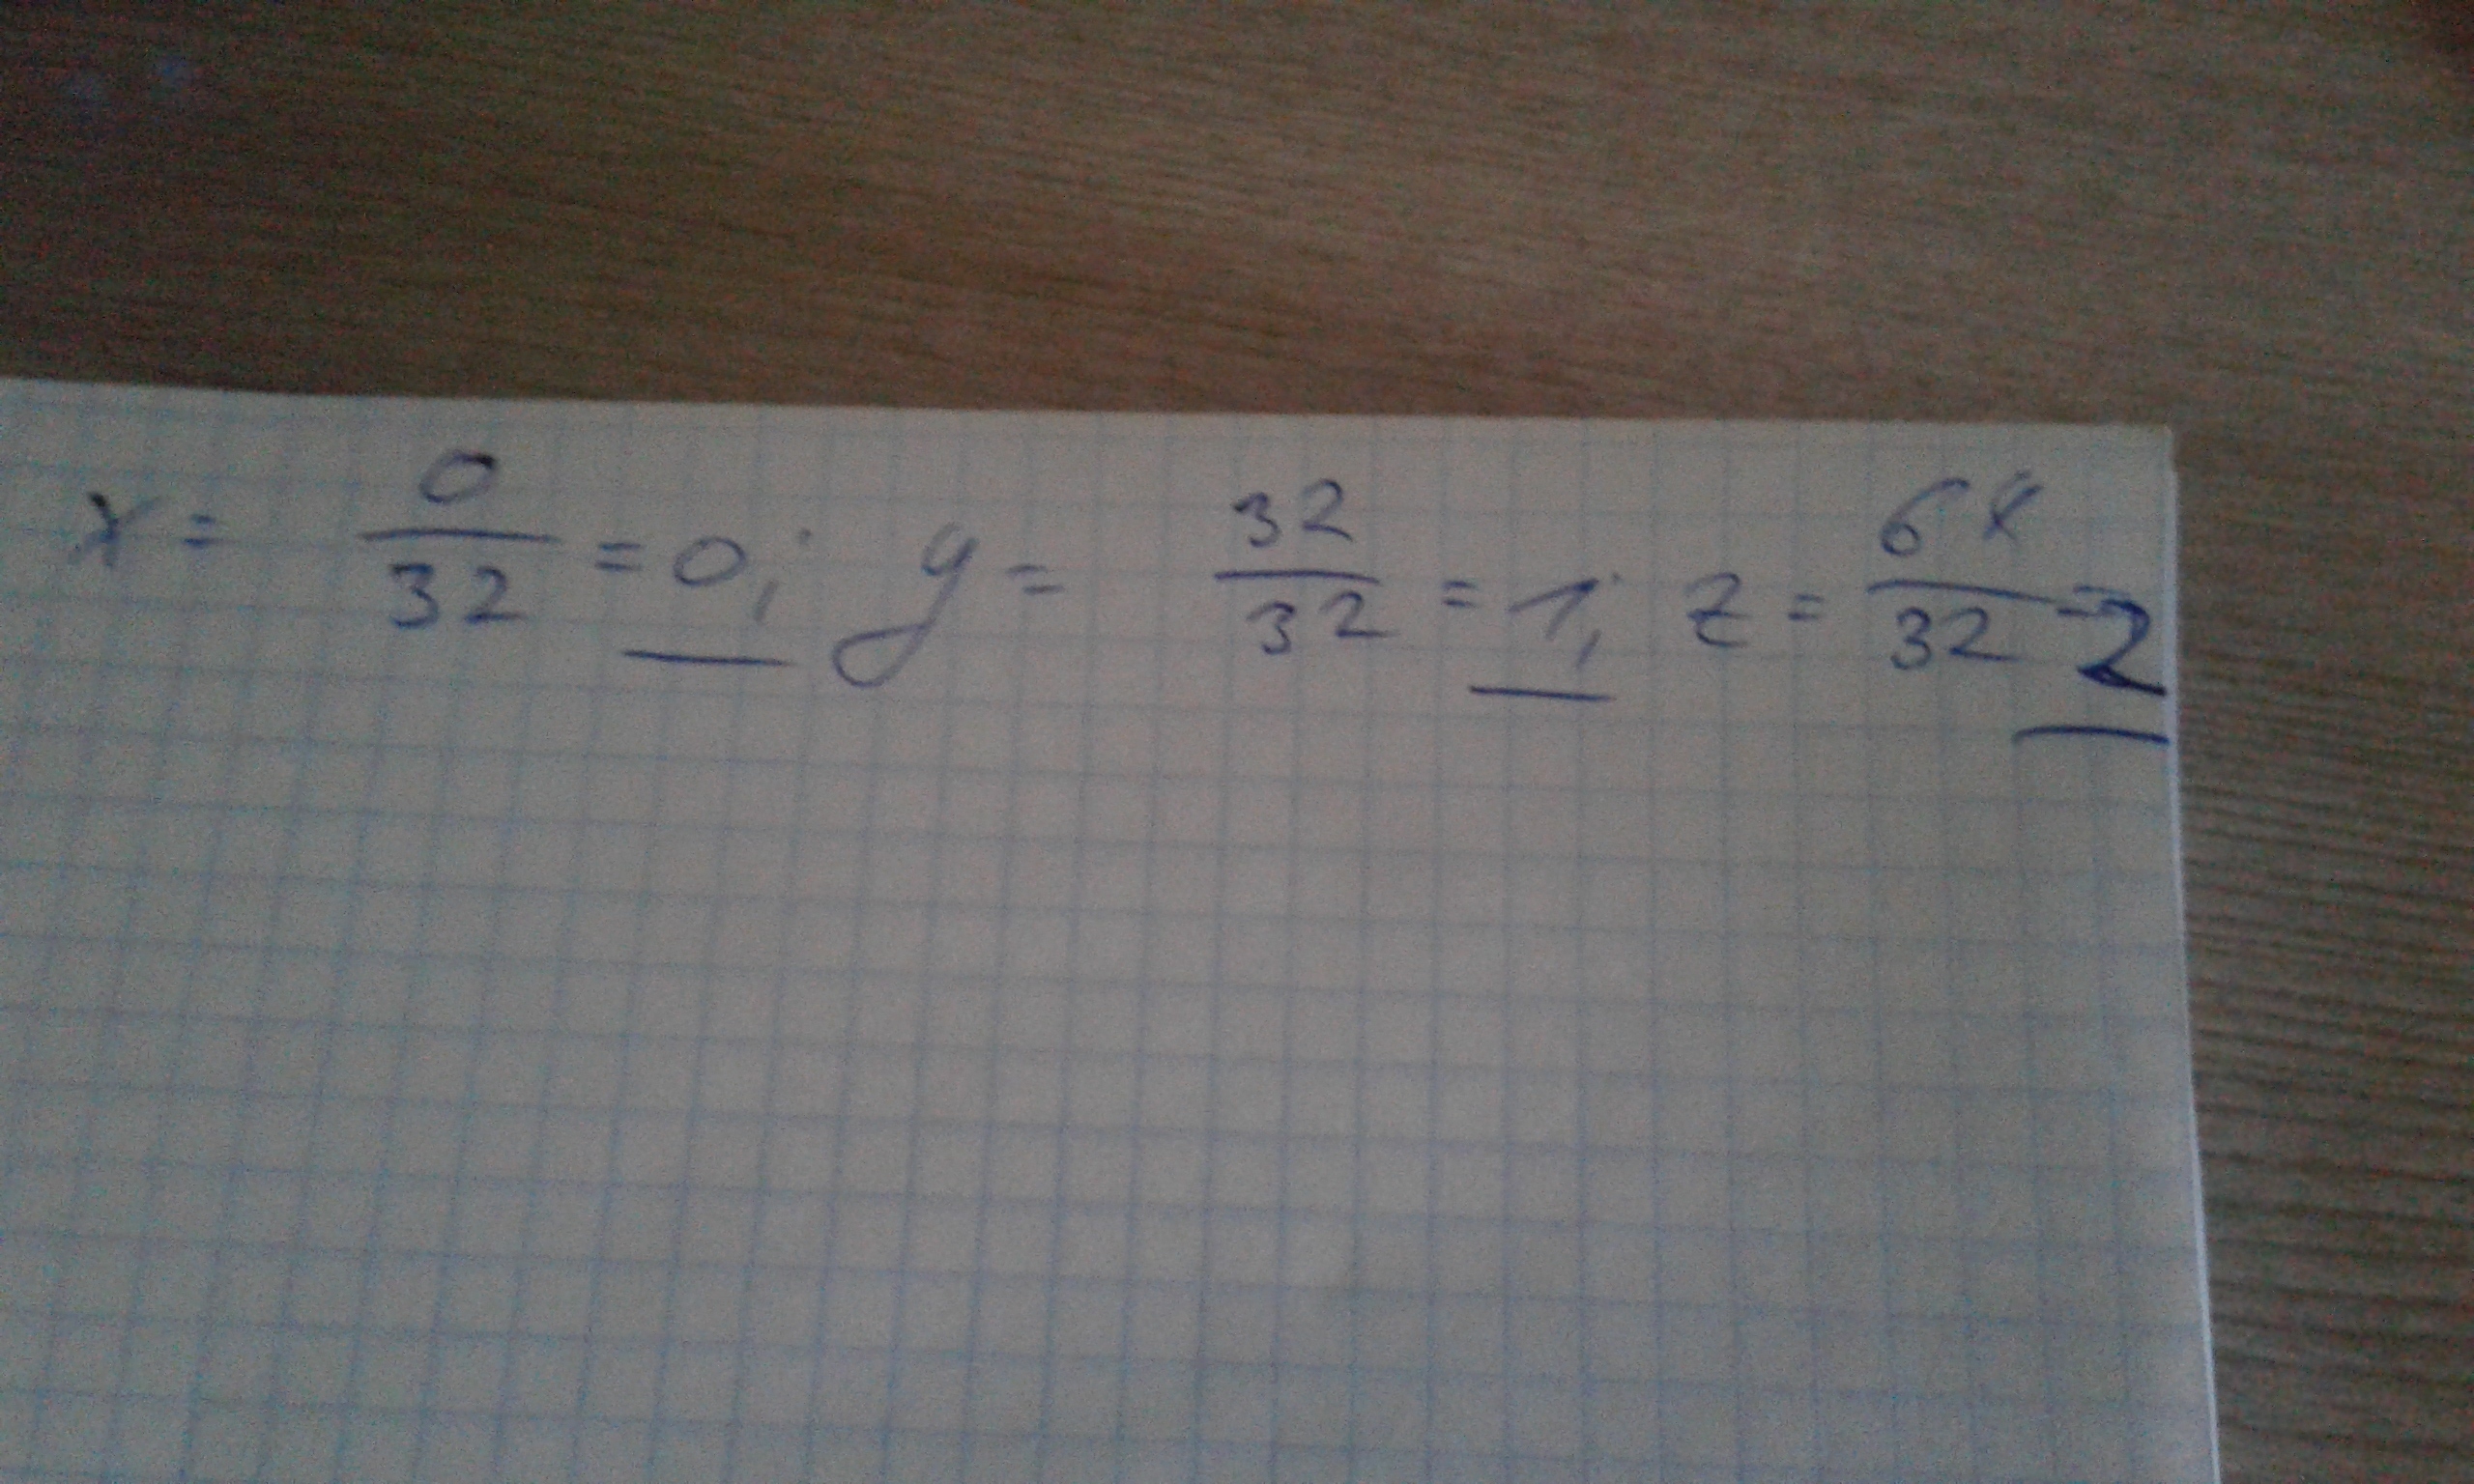 x = 0/32 = 0; y = 32/32 = 1; z = 64/32 = 2